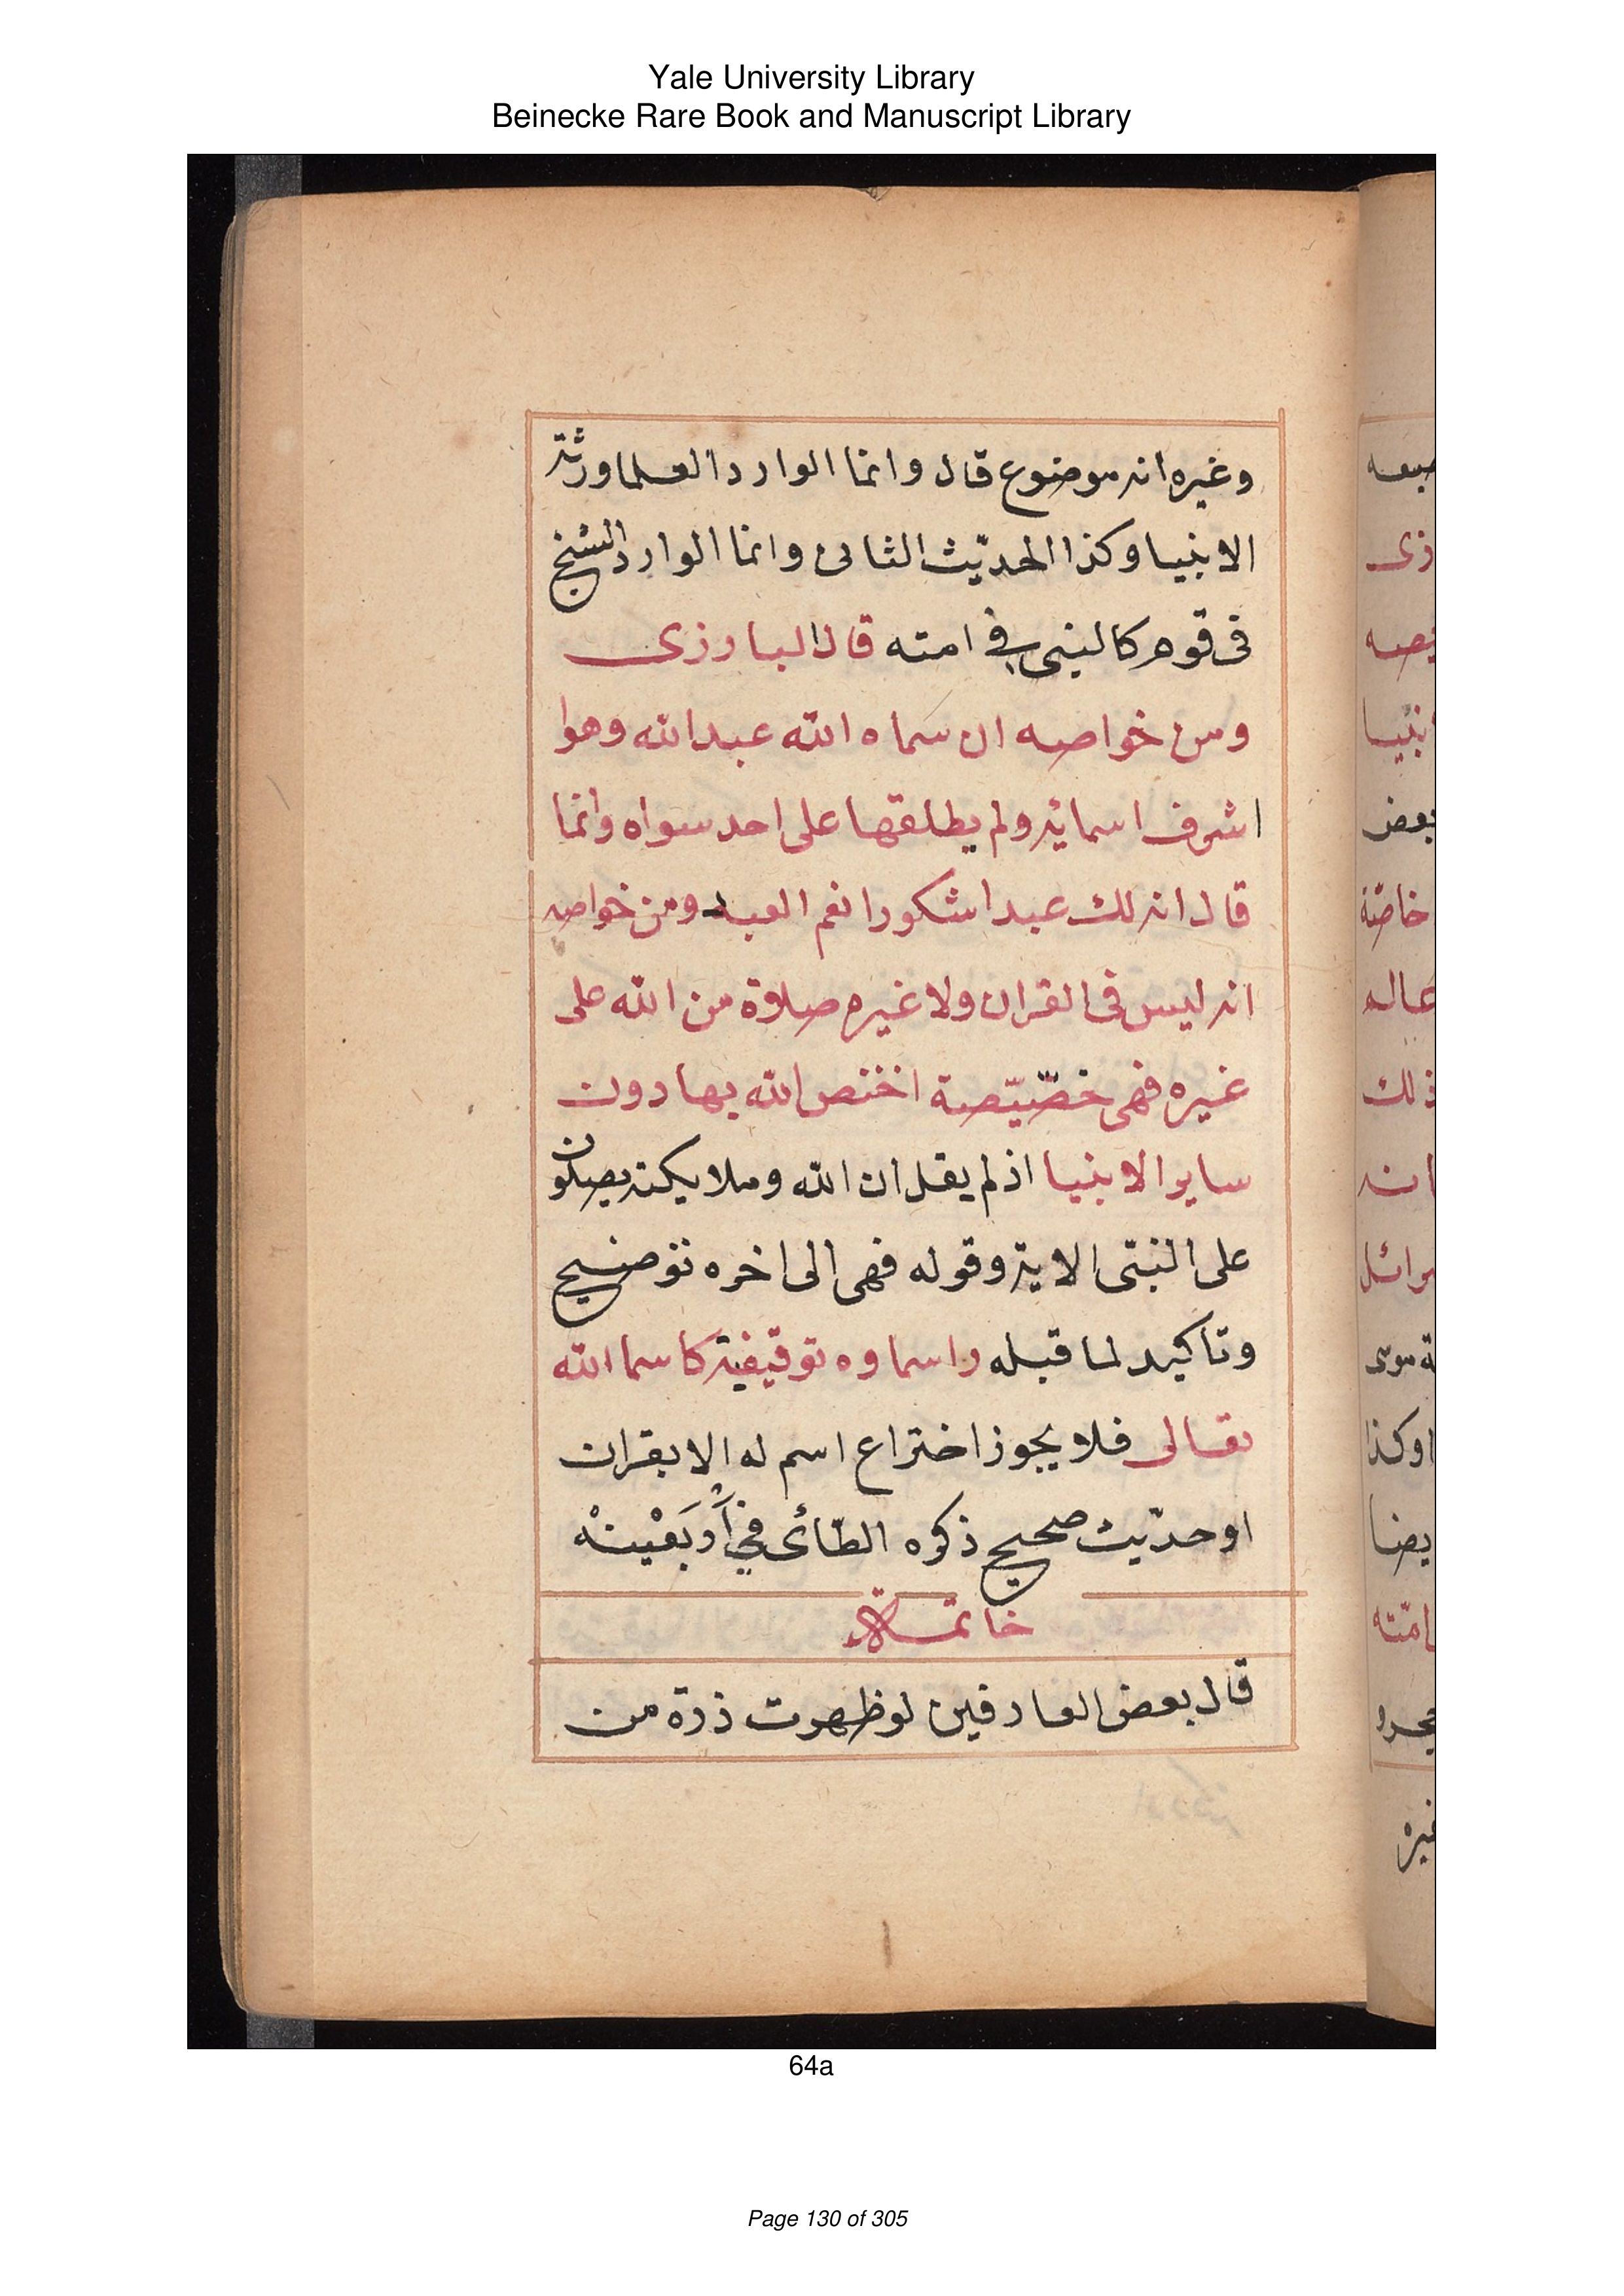 Yale University Library
Beinecke Rare Book and Manuscript Library
وغيره انه موضوع قال وانما الوارد العلما ورثة
الانبيا وكذا الحديث الثانى وانما الوارد الشيخ
فى قومه كالنبى فى امته قال البارزى
ومن خواصه ان سماه الله عبد الله وهوا
اشرف اسمائه ولم يطلقها على احد سواه وانما
قال انه لك عبدا شكورا نعم العبد ومن خواصه
انه ليس فى القران ولا غيره صلاة من الله على
غيره فهى خصّيّصة اختص الله بها دون
ساير الانبيا اذ لم يقل ان الله وملايكته يصلون
على النبىّ الاية وقوله فهى الى اخره توضيح
وتاكيد لما قبله واسماوه توقيفية كاسما الله
تعالى فلا يجوز اختراع اسم له الا بقران
او حديث صحيح ذكره الطّائى فى
خاتمة
قال بعض العارفين لو ظهرت ذرة من
صبعه
زى
يصه
نبيا
بعض
خاصّة
عاله
ذلك
انه
رائل
ة موسى
وكذا
يضا
امّته
غيره
64a
Page 130 of 305